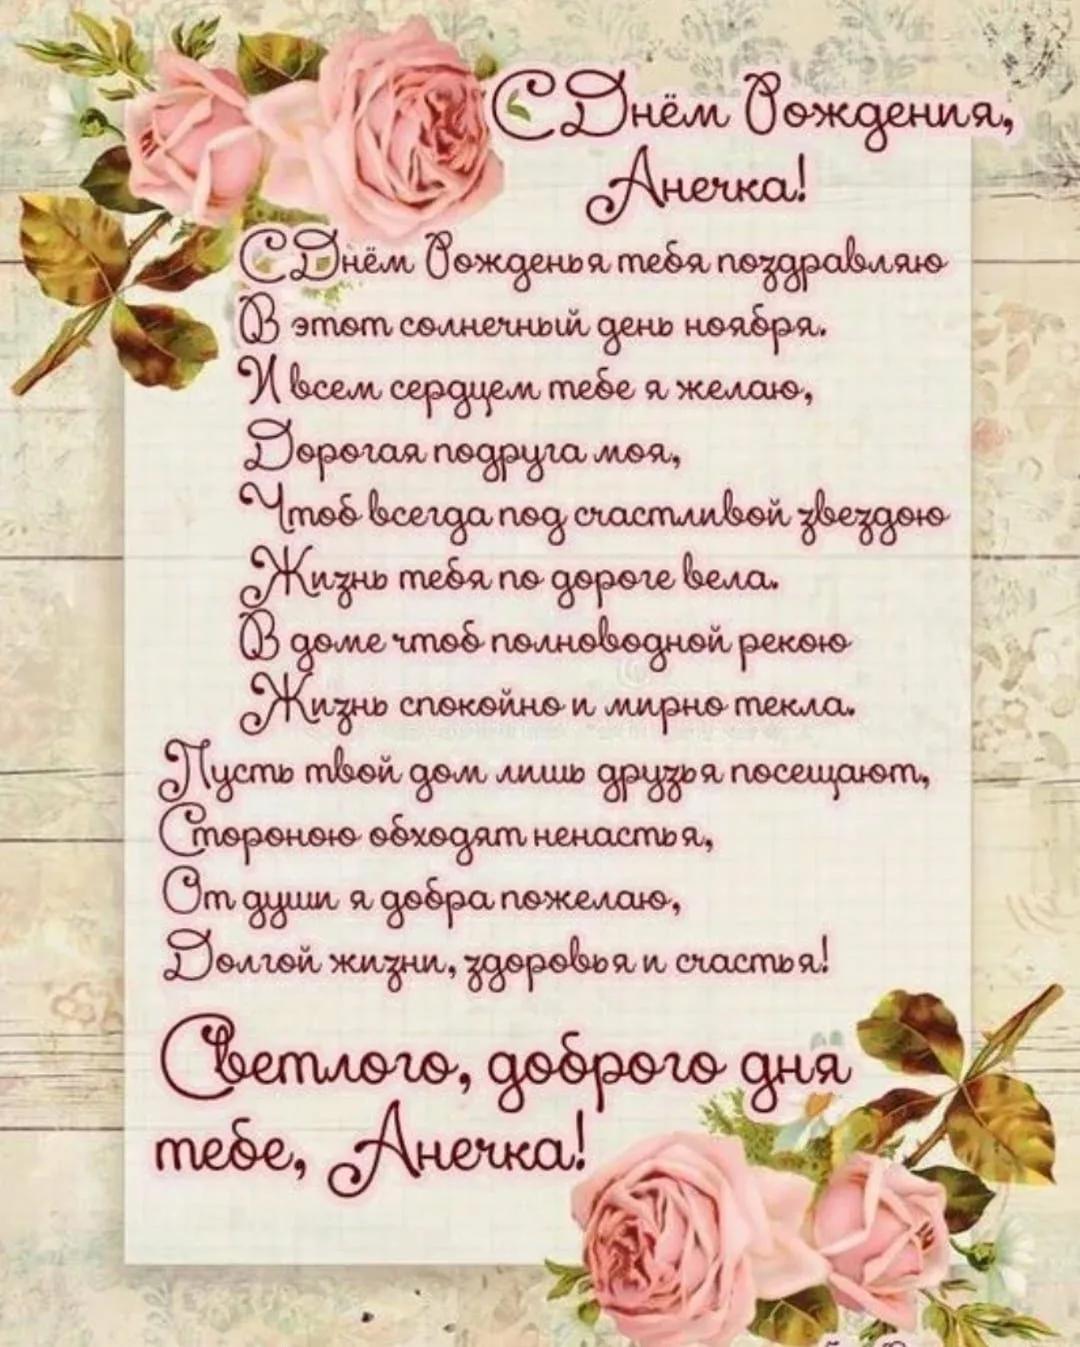 С Днём Рождения,
Анечка!
С Днём Рожденья тебя поздравляю
В этот солнечный день ноября.
И всем сердцем тебе я желаю,
Дорогая подруга моя,
Чтоб всегда под счастливой звездою
Жизнь тебя по дороге вела.
В доме чтоб полноводной рекою
Жизнь спокойно и мирно текла.
Пусть твой дом лишь друзья посещают,
Стороною обходят ненастья,
От души я добра пожелаю,
Долгой жизни, здоровья и счастья!
Светлого, доброго дня
тебе, Анечка!